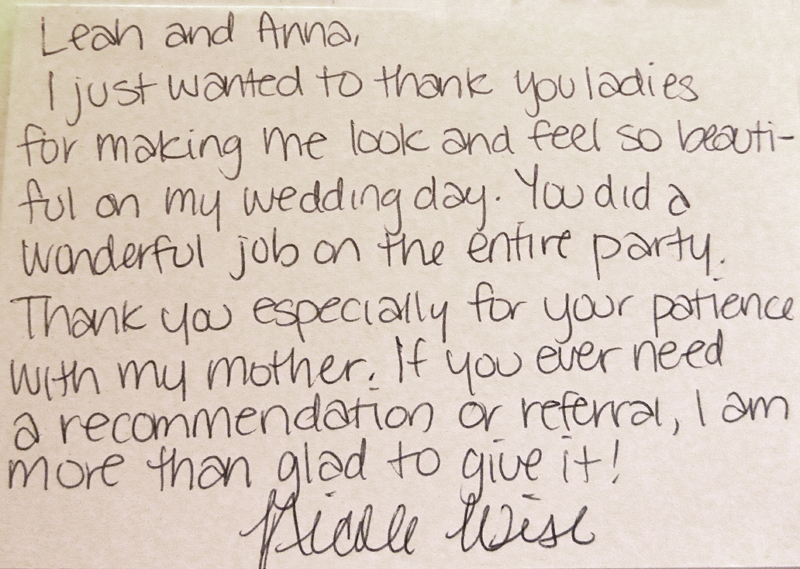 Leah and Anna,
I just wanted to thank you ladies
for making me look and feel so beauti-
ful on my wedding day. You did a
wonderful job on the entire party.
Thank you especially for your patience
with my mother. If you ever need
a recommendation or referral, I am
more than glad to give it!
Nicole Wise